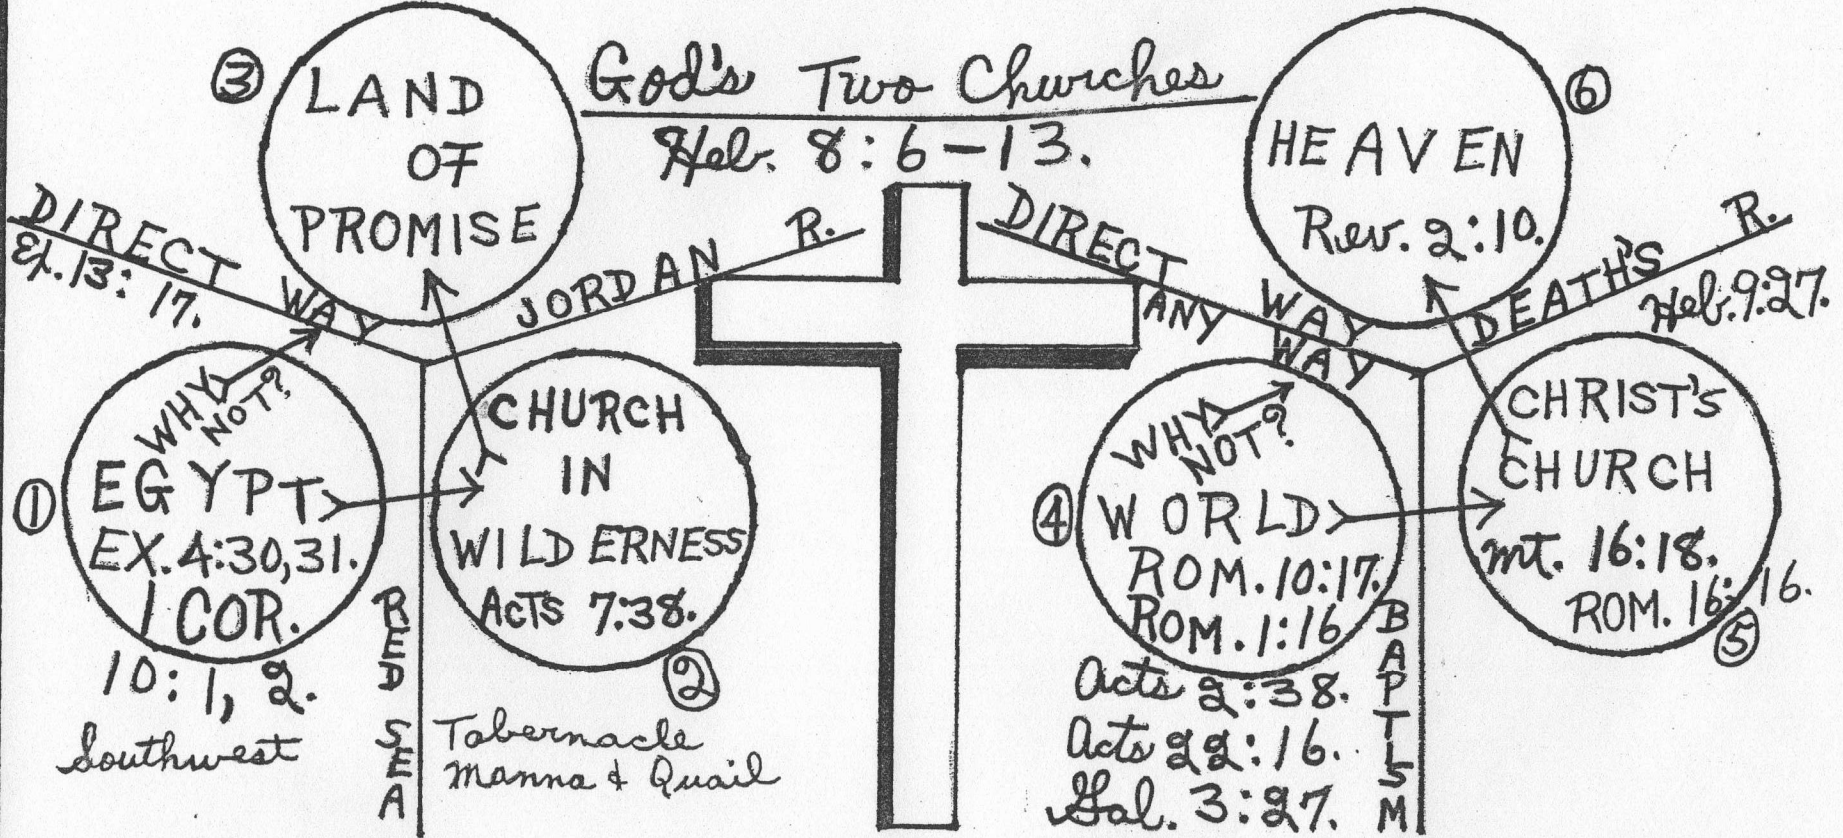 God's Two Churches
Heb. 8:6-13.
③
LAND
OF
PROMISE
DIRECT WAY
Ex. 13:17.
JORDAN R.
①
WHY
NOT?
EGYPT
EX. 4:30,31.
1 COR.
10:1, 2.
Southwest
RED SEA
CHURCH
IN
WILDERNESS
ACTS 7:38.
②
Tabernacle
Manna & Quail
⑥
HEAVEN
Rev. 2:10.
DIRECT WAY
ANY WAY
DEATH'S R.
Heb. 9:27.
④
WHY
NOT?
WORLD
ROM. 10:17.
ROM. 1:16
Acts 2:38.
Acts 22:16.
Gal. 3:27.
BAPTISM
CHRIST'S
CHURCH
Mt. 16:18.
ROM. 16:16.
⑤